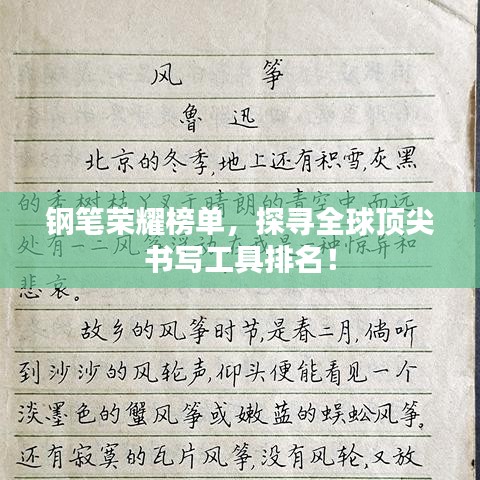 风 筝
鲁 迅
北京的冬季,地上还有积雪,灰黑
的秃树枝丫叉于晴朗的 空中,而远
钢笔荣耀榜单，探寻全球顶尖
处有一二风筝浮动 种惊异和
书写工具排名！
悲哀。
故乡的风筝时节,是春二月,倘听
到沙沙的风轮声,仰头便能看见一个
淡墨色的蟹风筝或嫩蓝的蜈蚣风筝。
还有寂寞的瓦片风筝,没有风轮,又放